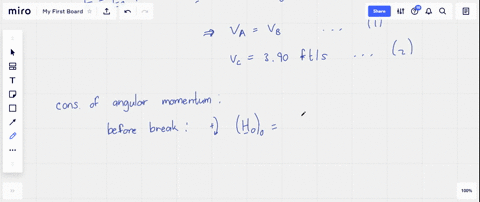 miro My First Board Share
⇒ V_A = V_B ... (1)
V_C = 3.90 ft/s ... (2)
cons. of angular momentum :
before break : +) (H_0)_0 =
100%